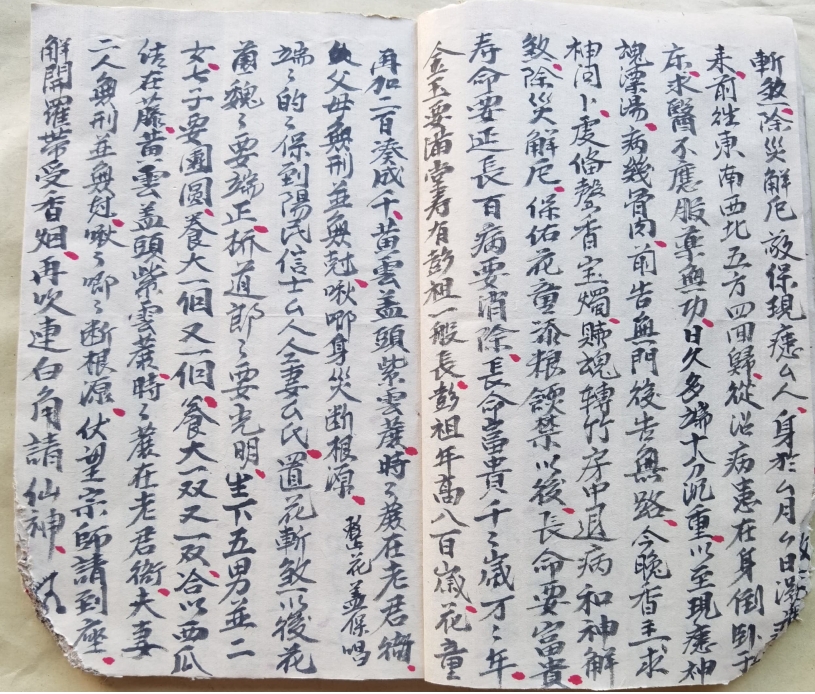 斬煞除災解厄敬保現患厶人身於厶月厶日
未前往東南西北五方四回歸從沿病患在身倒卧於
床求醫不應服藥無功日久多端十分沉重以至現患神
魂漂湯病幾骨肉前告無門後告無路今晚香主求
神问卜虔備馨香宝燭賍魂轉竹房中退病和神解
煞除災解厄保佑花童添粮禁以後長命要富貴
寿命要延長百病要消除長命富貴千々歲万々年
金玉要滿堂寿有彭祖一般長彭祖年高八百歲花童
再加二百凑成千苗雲盖頭紫雲蓑時々蓑在老君衙
父母無刑並無尅啾唧身災断根源 整花盖保唱
端々的々保到陽民信士厶人仝妻厶氏置花斬煞以後花
苗巍々要端正折道郎々要光明生下五男並二
女七子要團圆養大一個又一個養大一双又一双合以西瓜
结在藤苗雲盖頭紫雲蓑時々蓑在老君衙夫妻
二人無刑並無尅啾々唧々断根源伏望宗師請到座
解開羅带受香烟再吹連白角請仙神